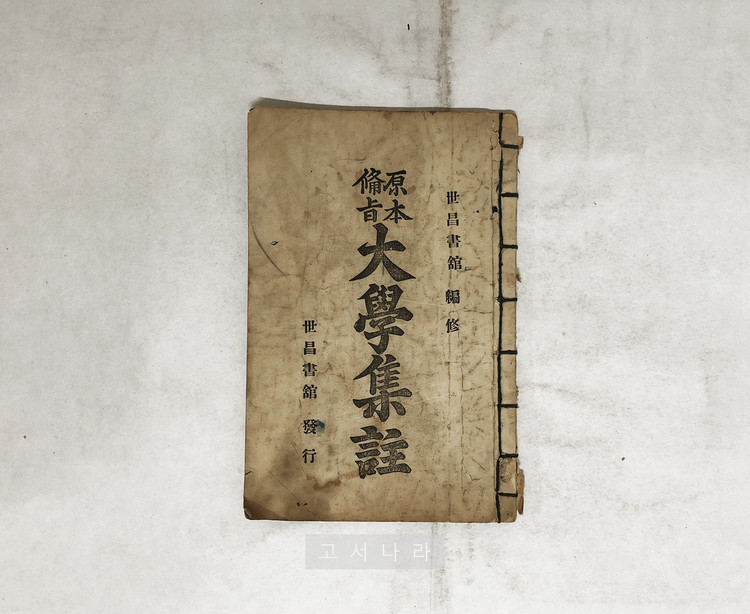 世昌書舘 編修
原本
備旨
大學集註
世昌書舘 發行
고서나라